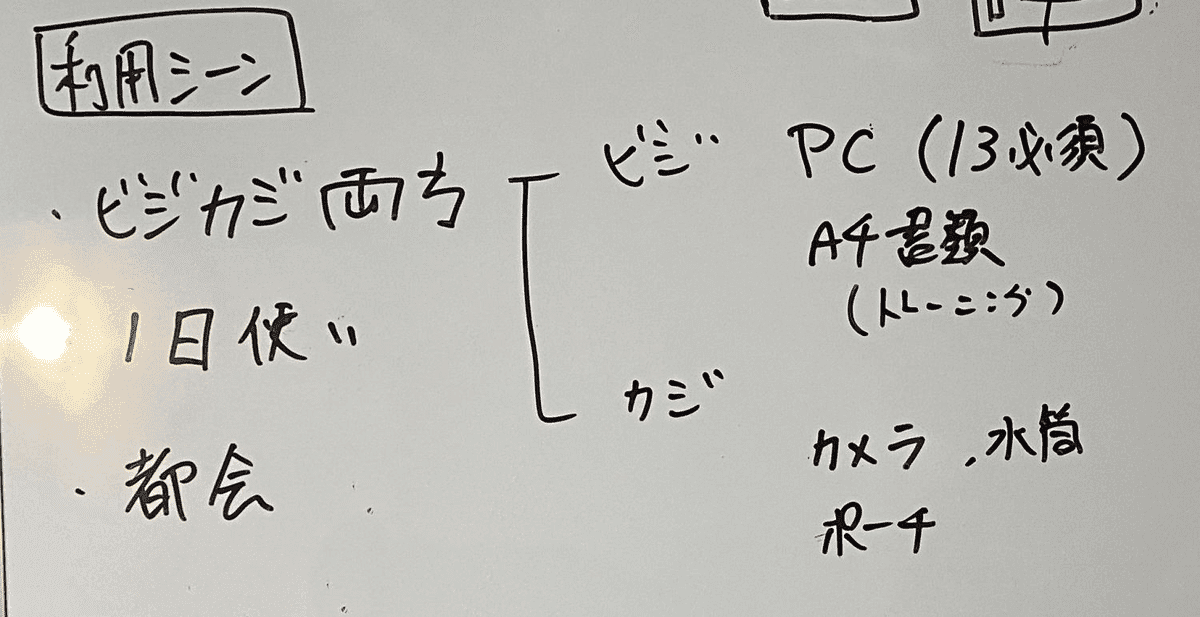 利用シーン
・ビジカジ両方
1日使い
・都会
ビジ PC(13必須)
A4書類
(トレーニング)
カジ
カメラ、水筒
ポーチ